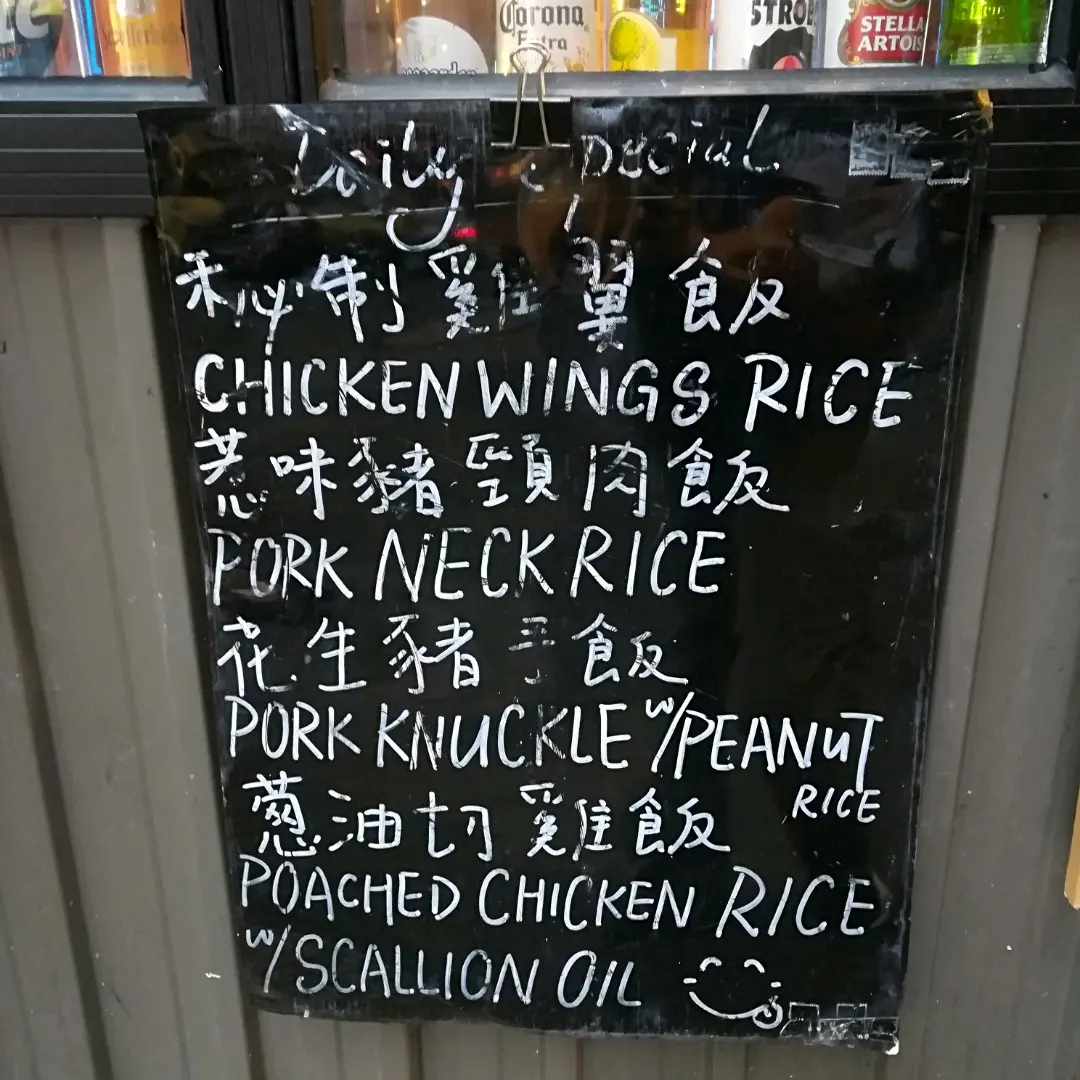 Corona
Extra
STELLA
ARTOIS
Daily Special
秘制雞翼飯
CHICKEN WINGS RICE
惹味豬頸肉飯
PORK NECK RICE
花生豬手飯
PORK KNUCKLE W/PEANUT
RICE
蔥油切雞飯
POACHED CHICKEN RICE
W/SCALLION OIL